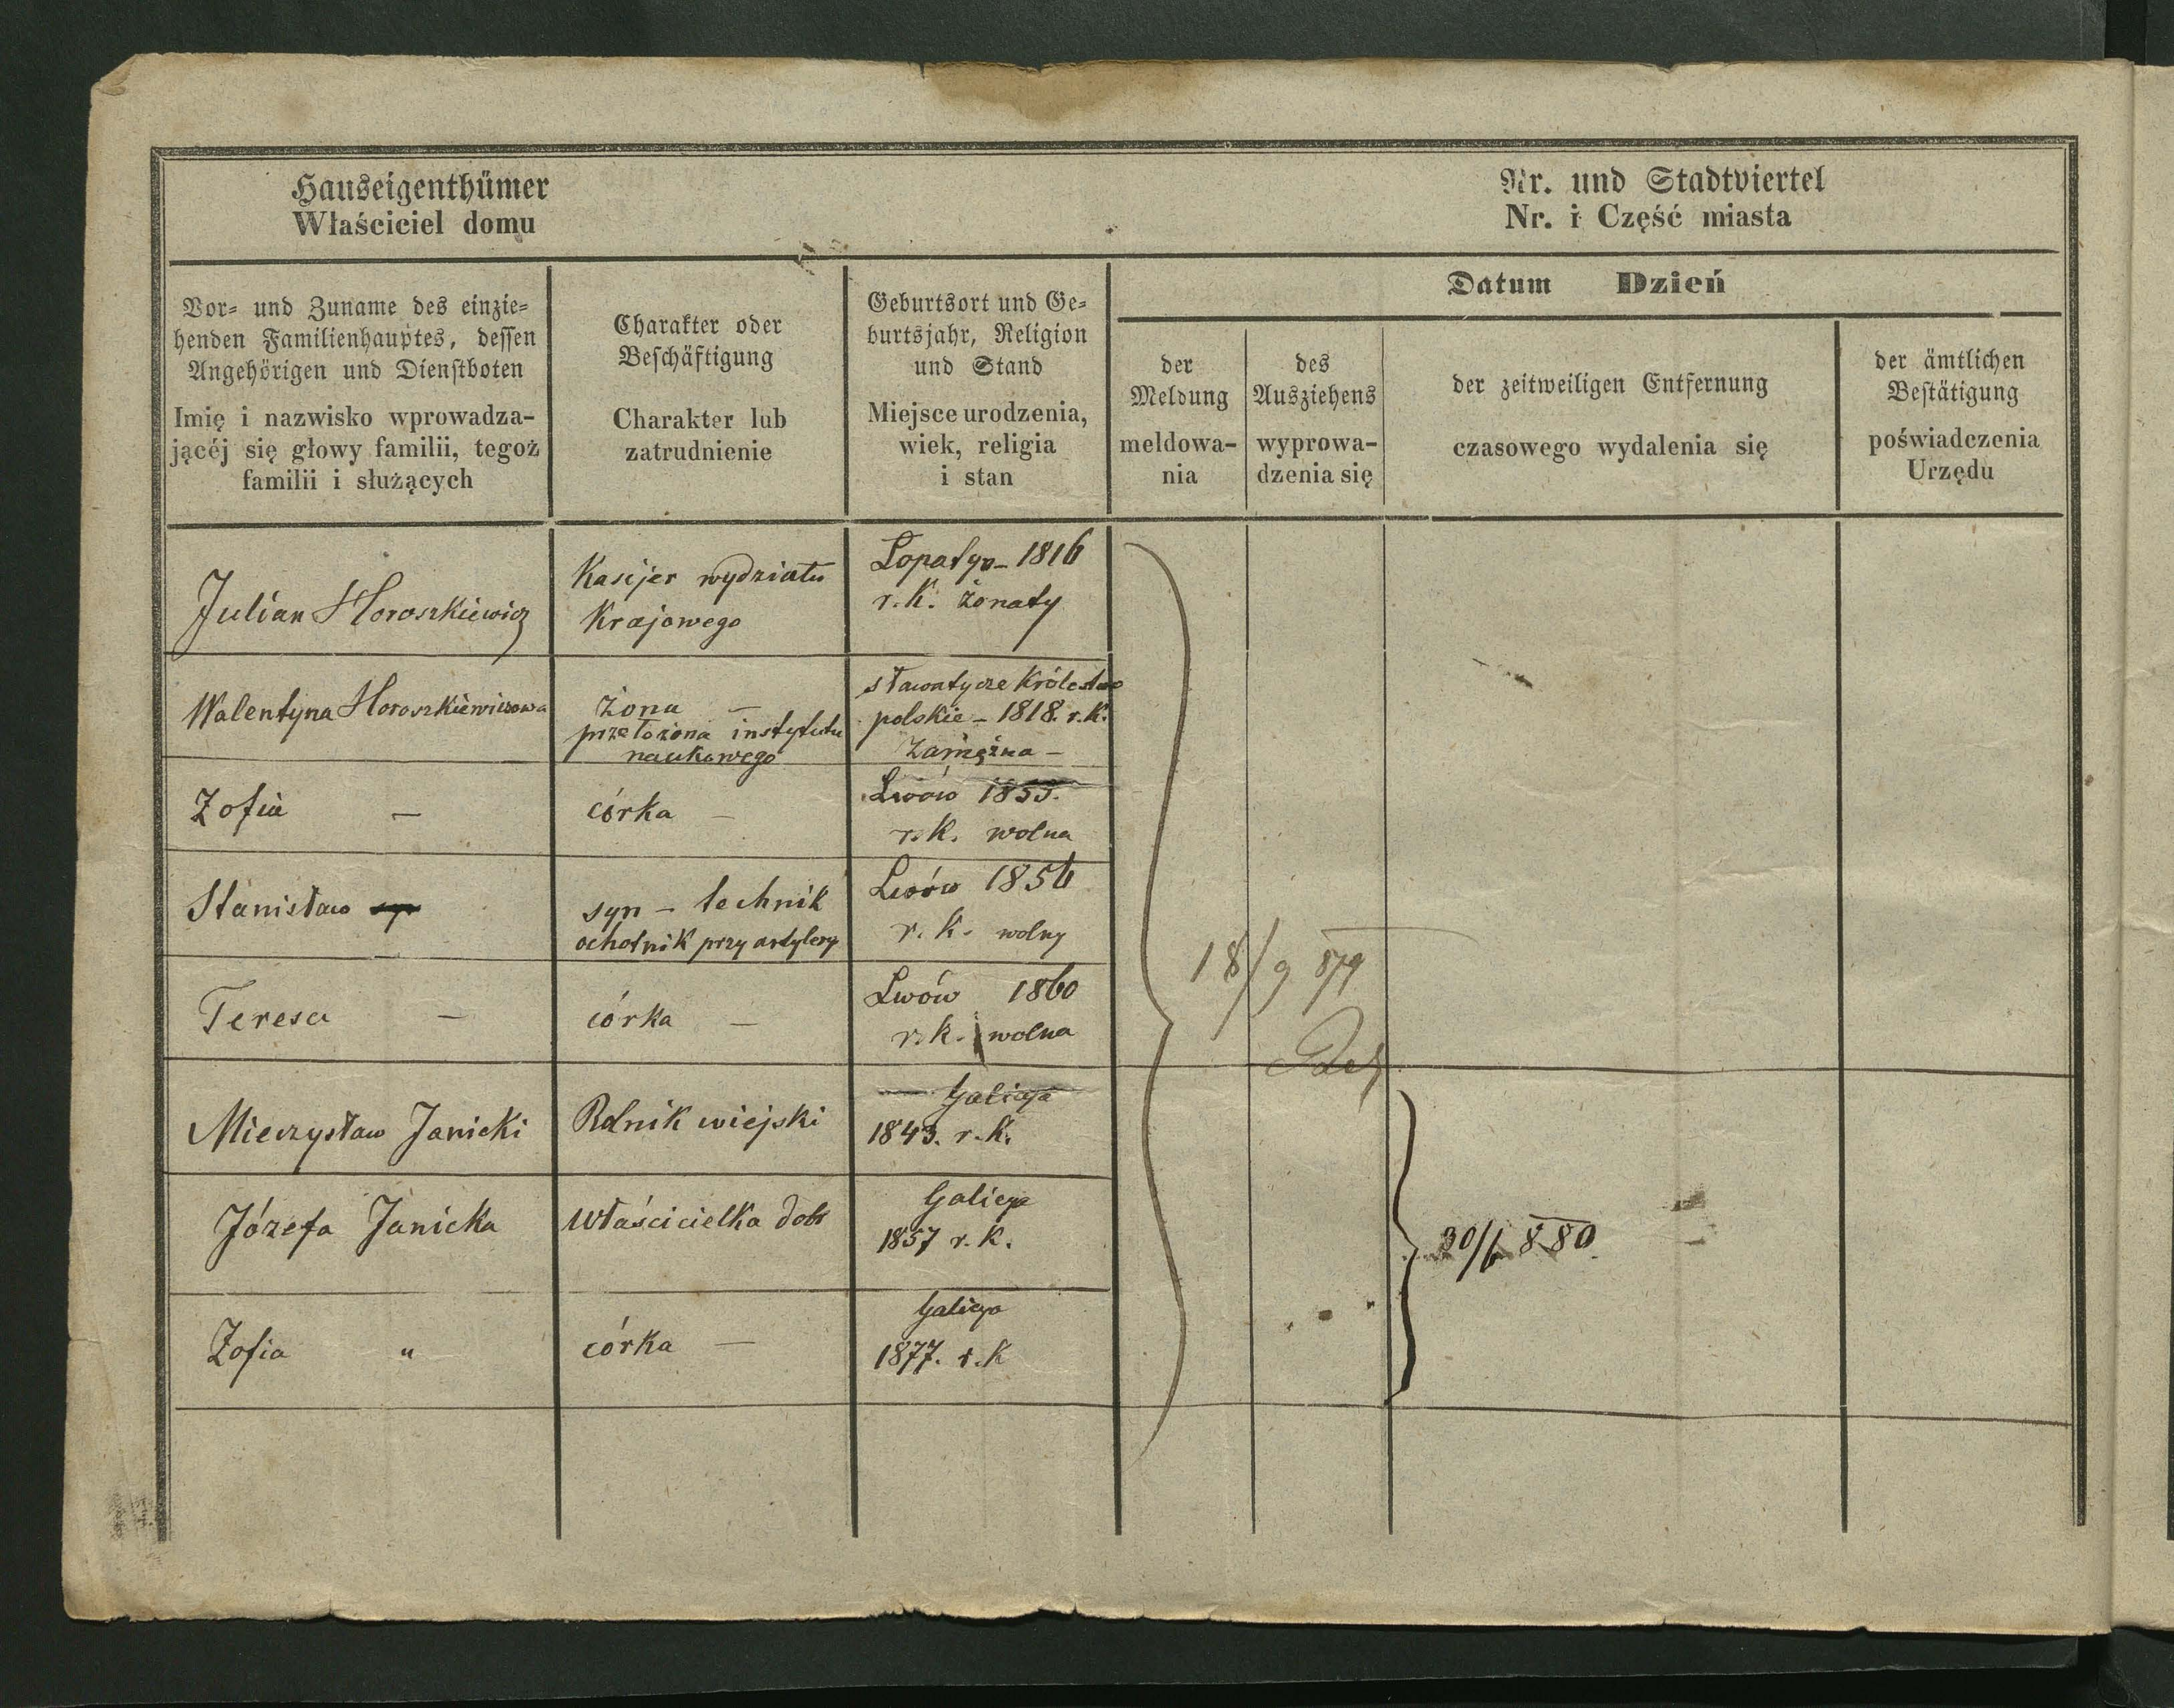 Hauseigenthümer
Właściciel domu
Nr. und Stadtviertel
Nr. i Część miasta
Vor- und Zuname des einzie-
henden Familienhauptes, dessen
Angehörigen und Dienstboten
Imię i nazwisko wprowadza-
jącéj się głowy familii, tegoż
familii i służących
Charakter oder
Beschäftigung
Charakter lub
zatrudnienie
Geburtsort und Ge-
burtsjahr, Religion
und Stand
Miejsce urodzenia,
wiek, religia
i stan
Datum Dzień
der
Meldung
meldowa-
nia
des
Ausziehens
wyprowa-
dzenia się
der zeitweiligen Entfernung
czasowego wydalenia się
der ämtlichen
Bestätigung
poświadczenia
Urzędu
Julian Horoszkiewicz
Kasijer wydziału
Krajowego
Lopatyn - 1816
r. k. żonaty
Walentyna Horoszkiewiczowa
żona —
przełożona instytutu
naukowego
sławatycze Królestwo
polskie - 1818. r. k.
zamężna —
Zofia —
córka —
Lwów 1853.
r. k. wolna
Stanisław syn
syn - technik
ochotnik przy artylery
Lwów 1856
r. k. wolny
Teresa —
córka —
Lwów 1860
r. k. wolna
18/9 879
Mieczysław Janicki
Rolnik wiejski
Galicya
1843. r. k.
Józefa Janicka
właścicielka dóbr
Galicya
1857 r. k.
30/6 880
Zofia "
córka —
Galicya
1877. r. k